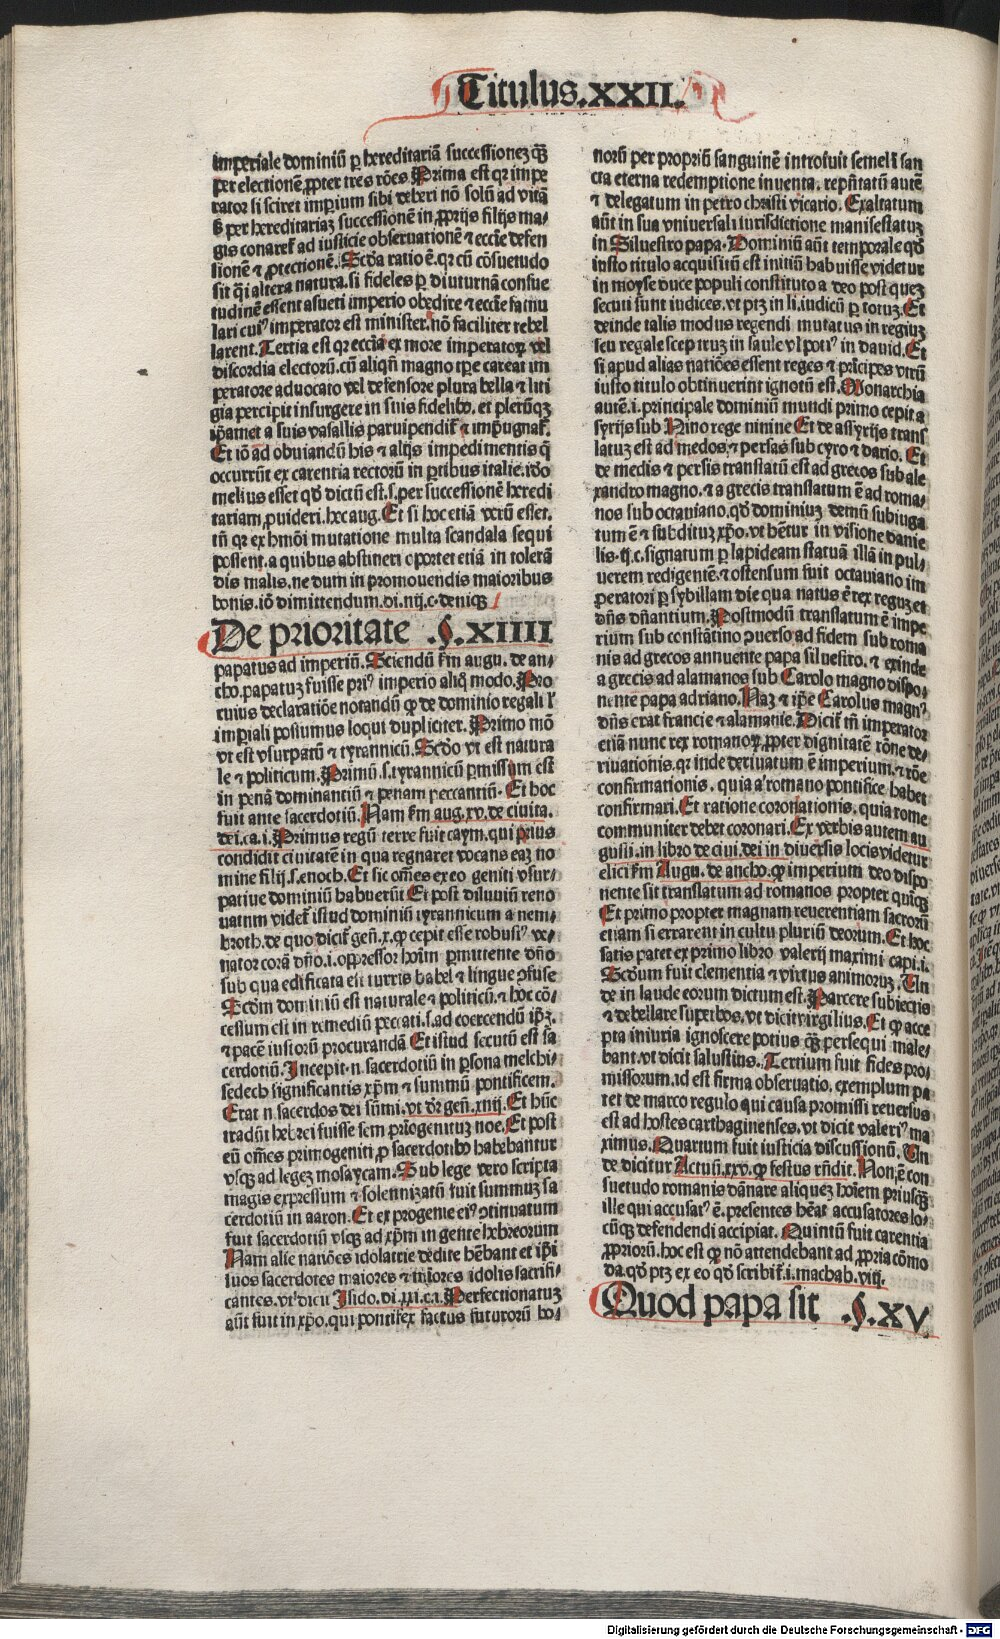 Titulus.XXII.
imperiale dominiū ꝑ hereditariā successionez q̃̃
per electionē ꝓpter tres rōes Prima est qr impe
rator si sciret imperium sibi deberi nō solū ad vitā
ß per hereditariaz successionē in ꝓprijs filijs ma/
gis conaret᷑ ad iusticie obseruationē ⁊ eccīe defen
sionē ⁊ ꝓtectionē. Scd̄a ratio ē. qr cū cōsuetudo
sit q̄i altera natura. si fideles ꝑ diuturnā consue
tudinē essent asueti imperio obedire ⁊ eccīe famu
lari cuiꝰ imperator est minister. nō faciliter rebel
larent. Tertia est qr eccīa ex more imperatoꝝ vel
discordia electorū. cū aliqn̄ magno tp̄e careat im
peratore aduocato vel defensore plura bella ⁊ liti
gia percipit insurgere in suis fidelibꝫ. et plerūqꝫ
ip̄amet a suis vasallis paruipendit᷑ ⁊ impugnat᷑.
Et iō ad obuiandū his ⁊ alijs impedimentis q̄
occurrūt ex carentia rectorū in ꝑtibus italie. iō
melius esset qd̄ dictū est. s. per successionē heredi
tariam ꝓuideri. hec aug. Et si hoc etiā verū esset.
tn̄ qr ex hmōi mutatione multa scandala sequi
possent. a quibus abstineri oportet etiā in tolerā
dis malis. ne dum in promouendis maioribus
bonis. iō dimittendum. di. iiij. c. deniqꝫ
De prioritate .§.XIIII
papatus ad imperiū. Sciendū fm augu. de an/
cho. papatuz fuisse priꝰ imperio aliq̄ modo. Pro
cuius declaratiōe notandū ꝙ de dominio regali l᷑
imperiali possumus loqui dupliciter. Primo mō
vt est vsurpatū ⁊ tyrannicū. Scd̄o vt est natura
le ⁊ politicum. Primū. s. tyrannicū ꝑmissum est
in penā dominantiū ⁊ penam peccantiū. Et hoc
fuit ante sacerdotiū. Nam fm aug. xv. de ciuita.
dei. ca. i. Primus regū terre fuit caym. qui prius
condidit ciuitatē in qua regnaret vocans eaz no
mine filij. s. enoch. Et sic om̄es ex eo geniti vsur/
patiue dominiū habuerūt Et post diluuiū reno
uatum videt᷑ istud dominiū tyrannicum a nem/
broth. de quo dicit᷑ gen̄. x. ꝙ cepit esse robustꝰ ve/
nator corā dn̄o. i. oppressor hoīm ꝑmittente dn̄o
sub qua edificata est turris babel ⁊ lingue ꝯfuse
Scd̄m dominiū est naturale ⁊ politicū. ⁊ hoc cō/
cessum est in remediū peccati. s. ad coercendū ip̄z.
⁊ pacē iustorū procurandā Et istud secutū est sa
cerdotiū. Incepit. n. sacerdotiū in ꝑsona melchi/
sedech significantis xp̄m ⁊ summū pontificem.
Erat n. sacerdos dei sūmi. vt dr̄ gen̄. xiiij. Et hūc
tradūt hebrei fuisse sem prīogenituz noe. Et post
eū om̄es primogeniti ꝓ sacerdotibꝫ habebantur
vsqꝫ ad legez mosaycam. Sub lege vero scripta
magis expressum ⁊ solennizatū fuit summuz sa
cerdotiū in aaron. Et ex progenie eiꝰ ꝯtinuatum
fuit sacerdotiū vsqꝫ ad xp̄m in gente hebreorum
Nam alie natiōes idolatrie dedite hēbant et ip̄i
suos sacerdotes maiores ⁊ mīores idolis sacrifi/
cantes. vt dicit Isido. di. xxi. c. i. Perfectionatuz
aūt fuit in xp̄o. qui pontifex factus futurorū bo/
norū per propriū sanguinē introiuit semel ī san
cta eterna redemptione inuenta. repn̄tatū autē
⁊ delegatum in petro christi vicario. Exaltatum
aūt in sua vniuersali iurisdictione manifestatuz
in Siluestro papa. Dominiū aūt temporale qd̄
iusto titulo acquisitū est initiū habuisse videtur
in moyse duce populi constituto a deo post quez
secuti sunt iudices. vt ptz in li. iudicū ꝑ totuz. Et
deinde talis modus regendi mutatus in regiuz
seu regale sceptruz in saule vl potiꝰ in dauid. Et
si apud alias natiōes essent reges ⁊ prīcipes vtrū
iusto titulo obtinuerint ignotū est. Monarchia
autē. i. principale dominiū mundi primo cepit a
syrijs sub Nino rege niniue Et de assyrijs trans
latuz est ad medos ⁊ persas sub cyro ⁊ dario. Et
de medis ⁊ persis translatū est ad grecos sub ale
xandro magno. ⁊ a grecis translatum ē ad roma/
nos sub octauiano. qd̄ dominiuz demū subiuga
tum ē ⁊ subdituz xp̄o. vt hētur in visione danie
lis. ij. c. signatum ꝑ lapideam statuā illā in pul/
uerem redigentē. ⁊ ostensum fuit octauiano im
peratori ꝑ sybillam die qua natus ē rex reguz et
dn̄s dn̄antium. Postmodū translatum ē impe
rium sub constātino ꝯuerso ad fidem sub roma
nis ad grecos annuente papa siluestro. ⁊ exinde
a grecis ad alamanos sub Carolo magno dispo/
nente papa adriano. Naz ⁊ ip̄e Carolus magnꝰ
dn̄s erat francie ⁊ alamanie. Dicit᷑ tn̄ imperator
etiā nunc rex romanoꝝ. ꝓpter dignitatē rōne de/
riuationis. qr inde deriuatum ē imperium. ⁊ rōe
confirmationis. quia a romano pontifice habet
confirmari. Et ratione coronationis. quia rome
communiter debet coronari. Ex verbis autem au
gustī. in libro de ciui. dei in diuersis locis videtur
elici fm Augu. de ancho. ꝙ imperium deo dispo
nente sit translatum ad romanos propter quīqꝫ
Et primo propter magnam reuerentiam sacrorū
etiam si errarent in cultu pluriū deorum. Et hoc
satis patet ex primo libro valerij maximi capi. i.
Scd̄um fuit clementia ⁊ virtus animoruz. Un
de in laude eorum dictum est. Parcere subiectis
⁊ debellare superbos. vt dicit virgilius. Et ꝙ acce
pta iniuria ignoscere potius q̄ꝫ persequi male/
bant. vt dicit salustius. Tertium fuit fides pro/
missorum. id est firma obseruatio. exemplum pa
tet de marco regulo qui causa promissi reuersus
est ad hostes carthaginenses. vt dicit valeriꝰ ma
ximus. Quartum fuit iusticia discussionū. Un
de dicitur Actuū. xxv. ꝙ festus rn̄dit. Non ē con
suetudo romanis dānare aliquez hoīem priusq̄ꝫ
ille qui accusatꝰ ē. presentes hēat accusatores lo/
cūqꝫ defendendi accipiat. Quintū fuit carentia
ꝓpriorū. hoc est ꝙ nō attendebant ad ꝓpria cōmo
da. qd̄ ptz ex eo qd̄ scribit᷑. i. machab. viij.
Quod papa sit .§.XV
Digitalisierung gefördert durch die Deutsche Forschungsgemeinschaft - DFG